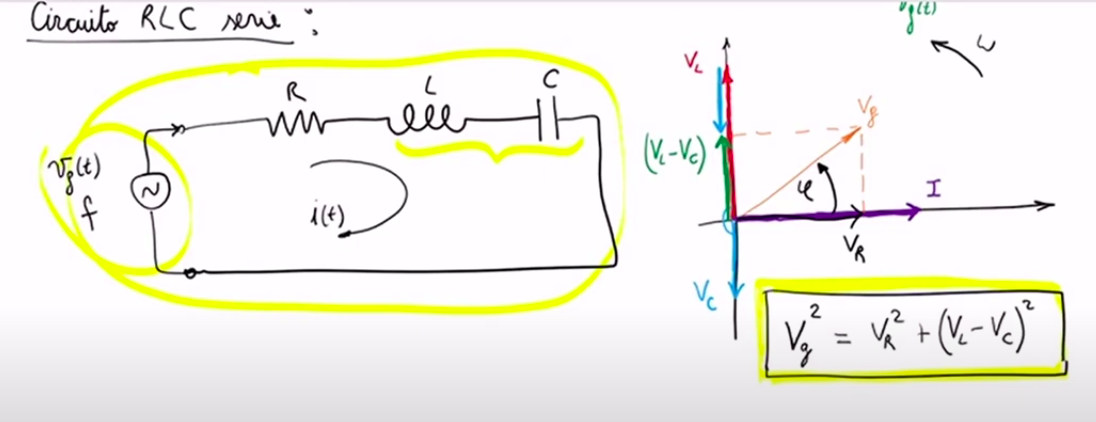 Circuito RLC serie :
Vg(t)
f
R
L
C
i(t)
Vg(t)
ω
VL
(VL-VC)
Vg
φ
I
VR
VC
Vg² = VR² + (VL-VC)²